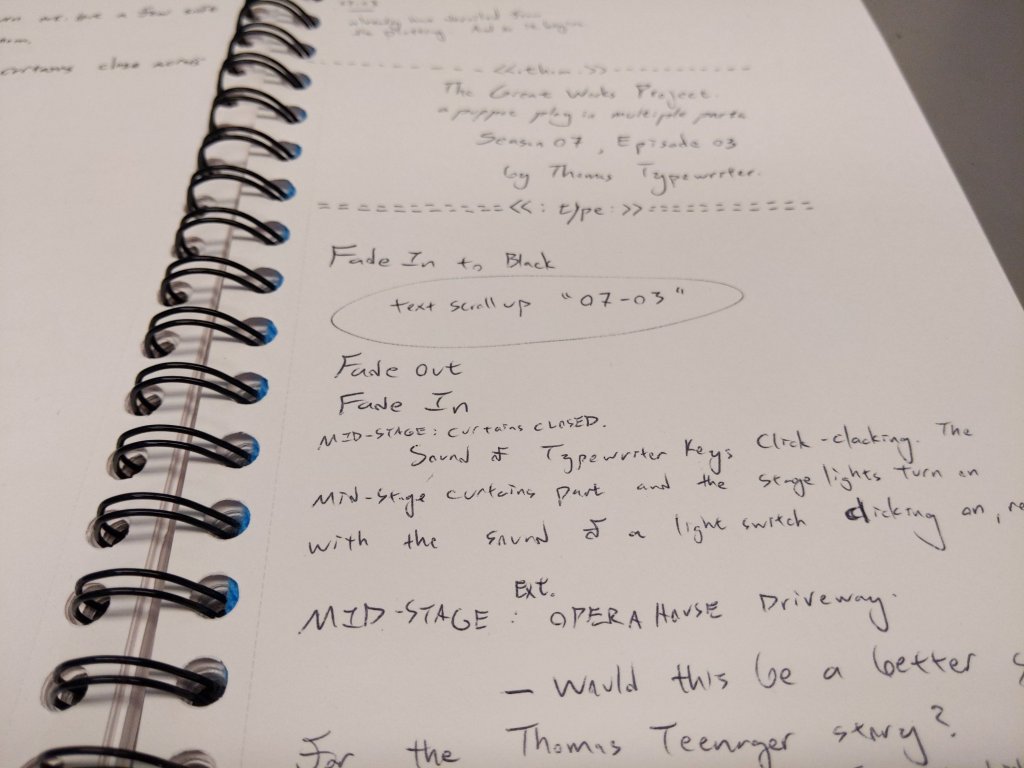 are but a few
curtains close across
already have deviated from
the plotting. And so it begins
The Great Works Project.
a puppet play in multiple parts
Season 07, Episode 03
by Thomas Typewriter.
==========<<: t/pe :>>============
Fade In to Black
text scroll up "07-03"
Fade out
Fade In
MID-STAGE: Curtains CLOSED.
Sound of Typewriter Keys Click-clacking. The
Mid-stage curtains part and the stage lights turn on
with the sound of a light switch clicking on, re
Ext.
MID-STAGE: OPERA HOUSE Driveway.
- Would this be a better s
For the Thomas Teenager story?